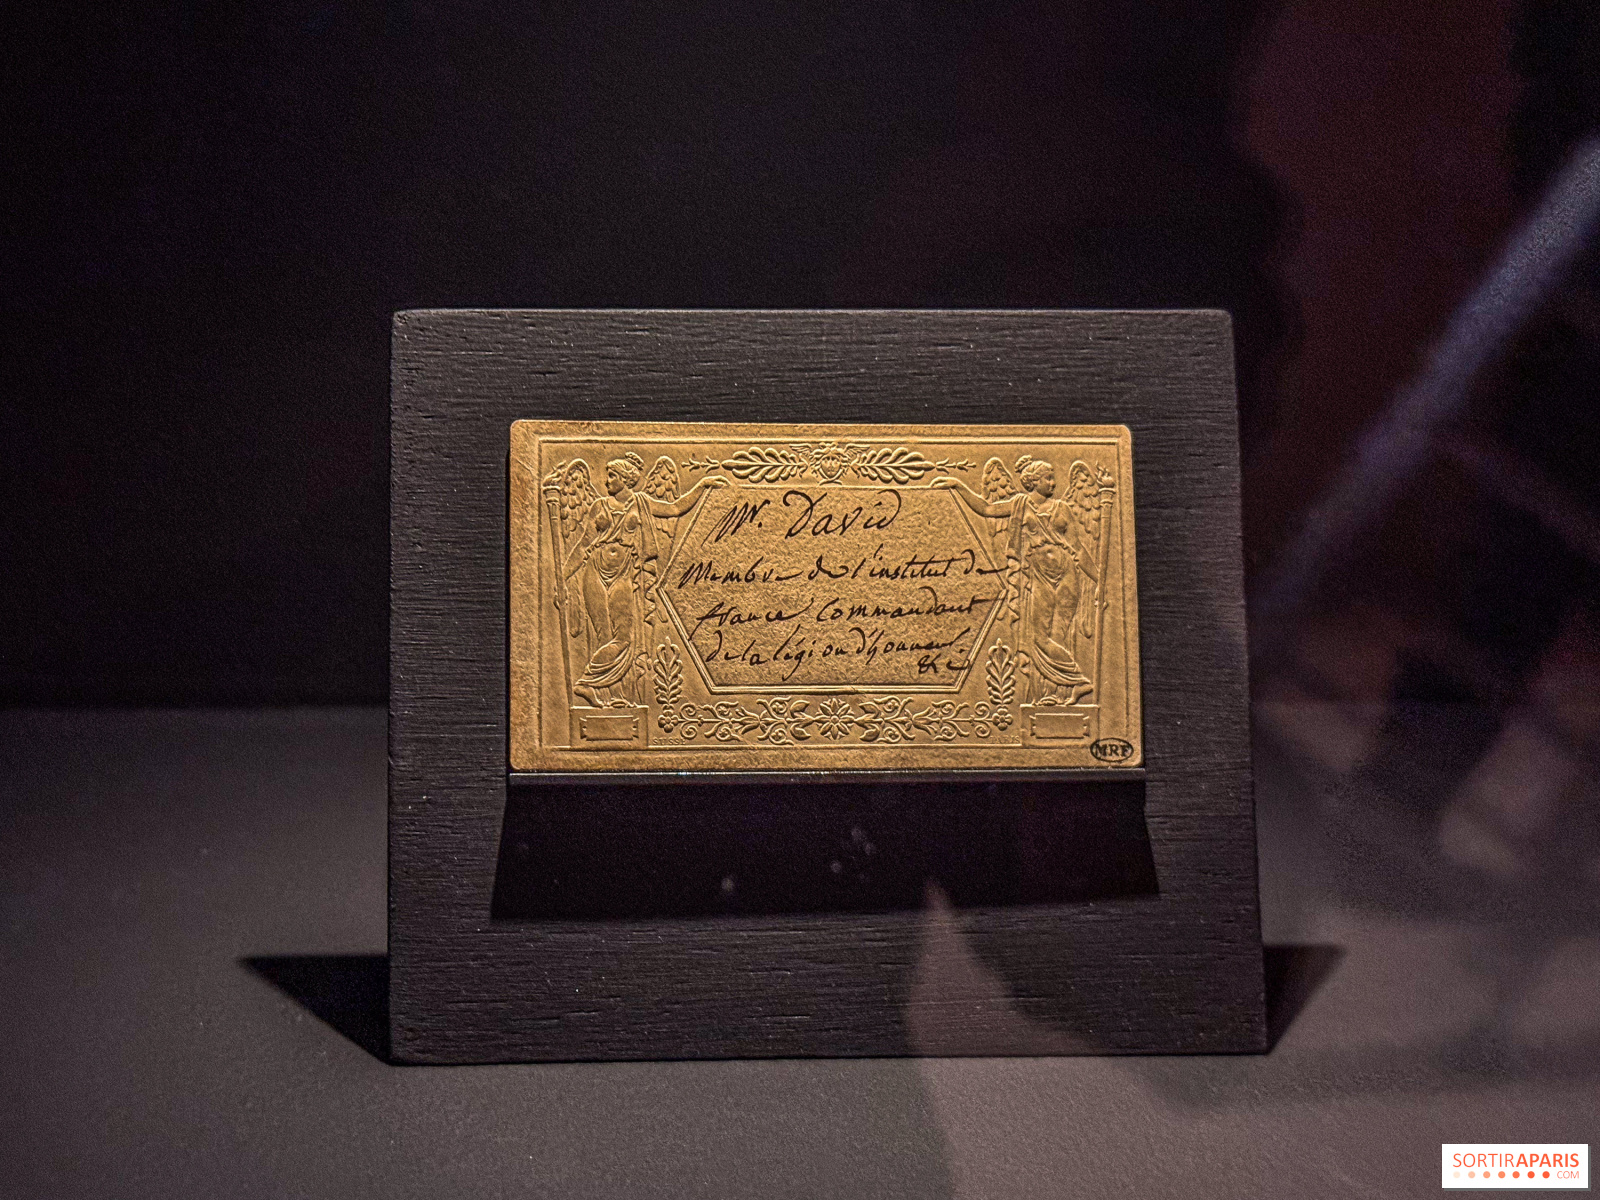 Mr. David
Membre de l'institut de
france, Commandant
de la légion d'honneur
&c
MRF
SORTIRAPARIS
.COM